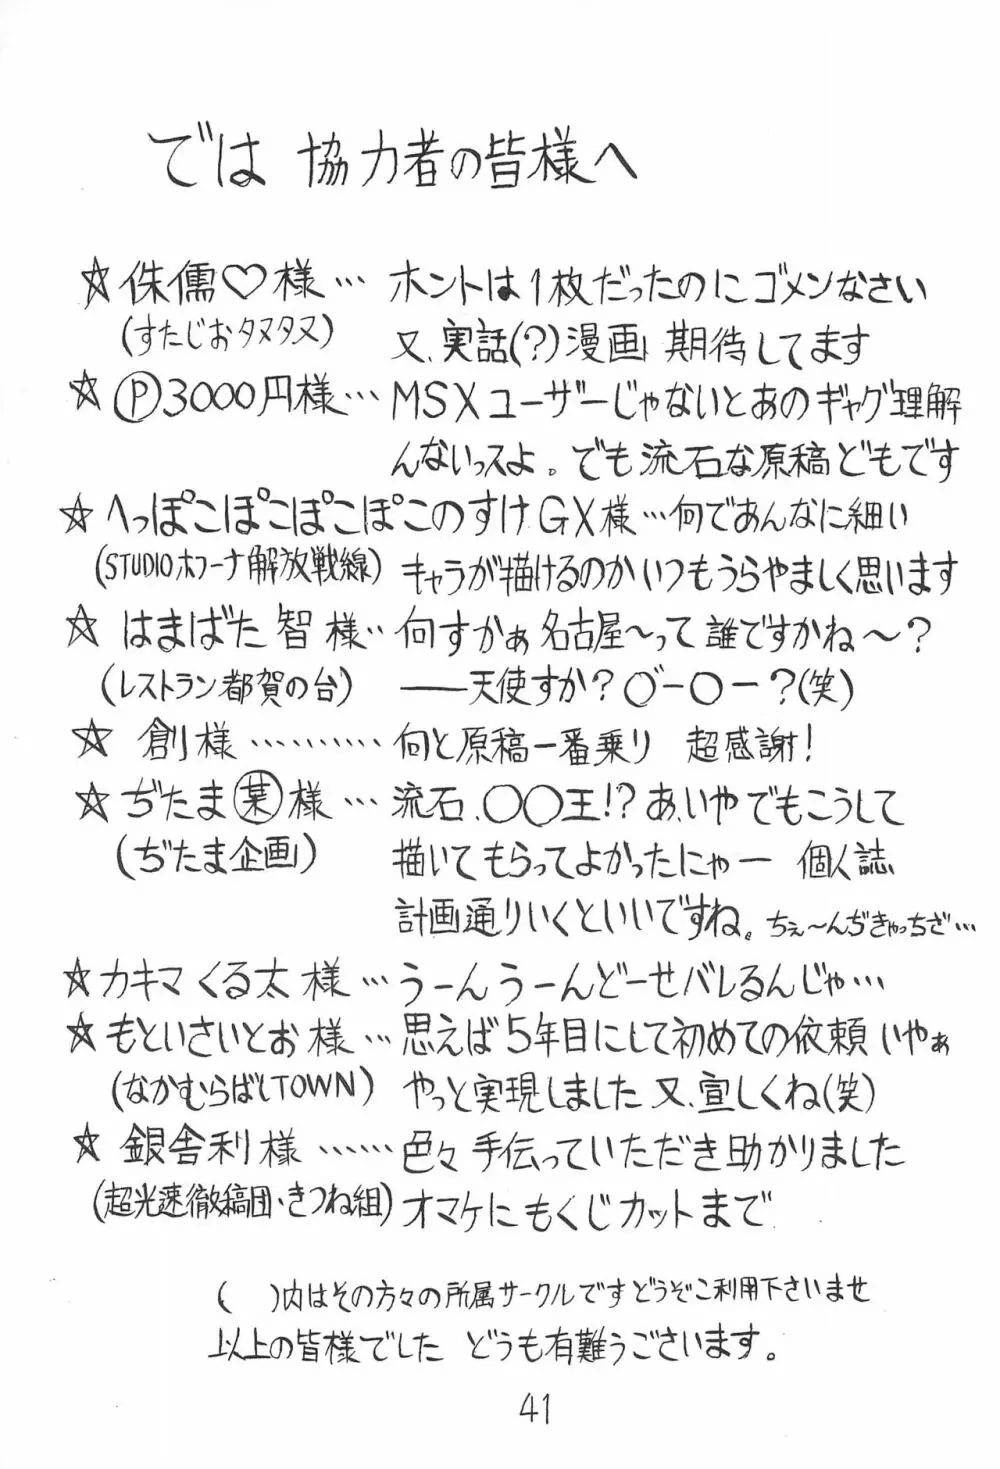 では 協力者の皆様へ
☆侏儒♡様… ホントは1枚だったのにゴメンなさい
(すたじおタヌタヌ) 又、実話(?)漫画 期待してます
☆Ⓟ3000円様… MSXユーザーじゃないとあのギャグ理解
んないっスよ。でも流石な原稿どもです
☆へっぽこぽこぽこぽこのすけGX様…何であんなに細い
(STUDIOホフーナ解放戦線) キャラが描けるのかいつもうらやましく思います
☆ はまばた 智 様‥ 何すかぁ 名古屋〜って 誰ですかね〜?
(レストラン都賀の台) ——天使すか? ○゛ー○ー?(笑)
☆ 創様………… 何と原稿一番乗り 超感謝!
☆ぢたま㊎様… 流石、○○王!? あ、いやでもこうして
(ぢたま企画) 描いてもらってよかったにゃー 個人誌
計画通りいくといいですね。ちぇ〜んぢきゃっちざ…
☆カキマくる太様… うーんうーんどーせバレるんじゃ…
☆もといさいとお様… 思えば5年目にして初めての依頼 いやぁ
(なかむらばしTOWN) やっと実現しました 又、宣しくね(笑)
☆ 銀舎利様…… 色々手伝っていただき助かりました
(超光速徹稿団・きつね組) オマケにもくじカットまで
( )内はその方々の所属サークルです どうぞご利用下さいませ
以上の皆様でした どうも有難うございます。
41